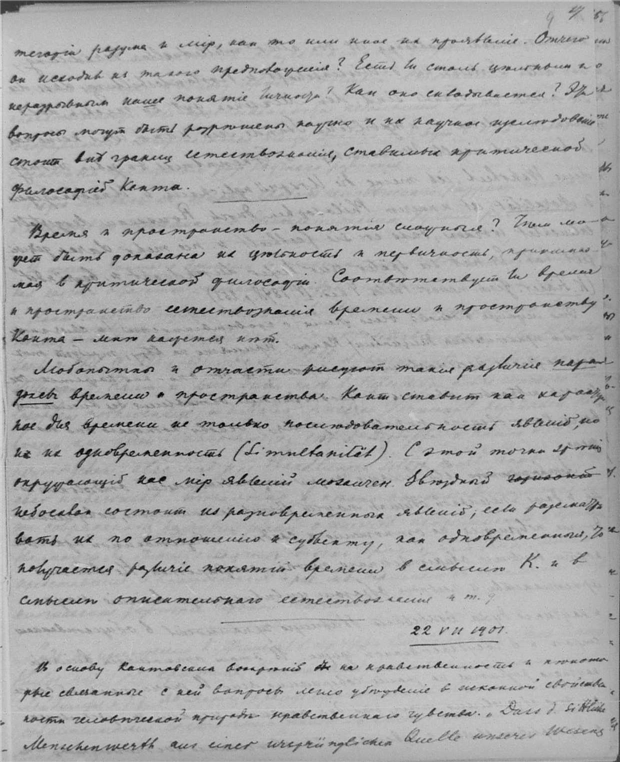 тегорій разума и мір, как то или иное их проявленіе. Отчего
он исходит из такого предположенія? Есть ли столь цѣльным и
неразрывным наше понятіе личности? Как оно складывается? Эти
вопросы могут быть разрѣшены научно и их научное изслѣдованіе
стоит внѣ границ естествознанія, ставимых критической
философіей Канта.
Время и пространство — понятія сложныя? Чѣм мо-
жет быть доказана их цѣльность и первичность, принимае-
мая в критической философіи. Соотвѣтствует ли время
и пространство естествознанія времени и пространству
Канта — мнѣ кажется нѣт.
Любопытны и отчасти рисуют такія различія
времени и пространства. Кант ставит как характер
ное для времени не только послѣдовательность явленій, но
и их одновременность (Simultanität). С этой точки зрѣнія
окружающій нас мір явленій мозаичен. Звѣздный горизонт
небосвод состоит из разновременных явленій, если разсматри
вать их по отношенію к субъекту, как одновременныя,
получается различіе понятій времени в смыслѣ К. и в
смыслѣ описательнаго естествознанія и т.
22 VII 1901.
В основу Кантовских воззрѣній на нравственность и нѣкото-
рые связанные с ней вопросы легло убѣжденіе в исконной свойствен
ности человѣческой природѣ нравственнаго чувства. Dass d. sittliche
Menschenwerth aus einer ursprünglichen Quelle unseres Wesens